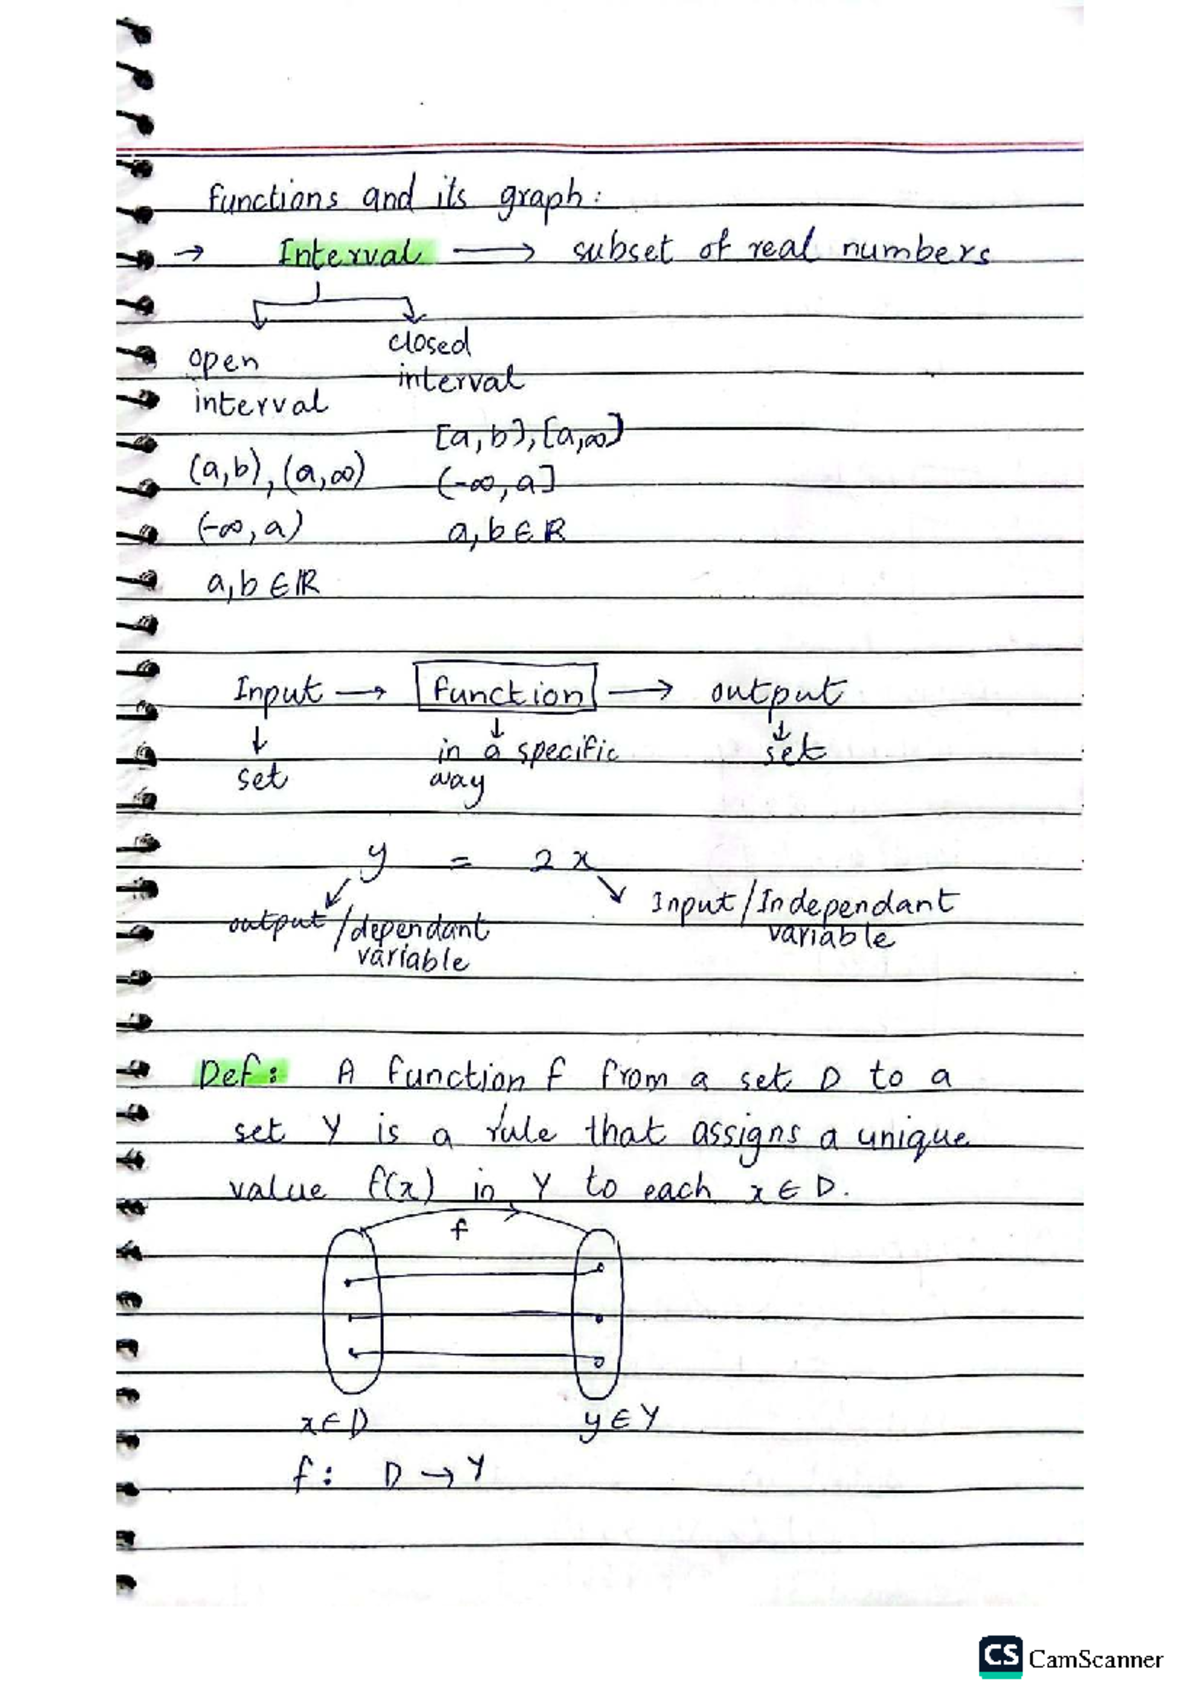 Functions and its graph:
→ Interval → subset of real numbers
open interval
closed interval
(a,b), (a,∞)
(-∞, a)
a, b ∈ ℝ
[a, b], [a,∞)
(-∞, a]
a, b ∈ ℝ
Input → function → output
↓ ↓ ↓
set in a specific way set
y = 2x
output/dependant variable
Input/Independant variable
Def: A function f from a set D to a
set Y is a rule that assigns a unique
value f(x) in Y to each x ∈ D.
f
x ∈ D y ∈ Y
f: D → Y
CS CamScanner